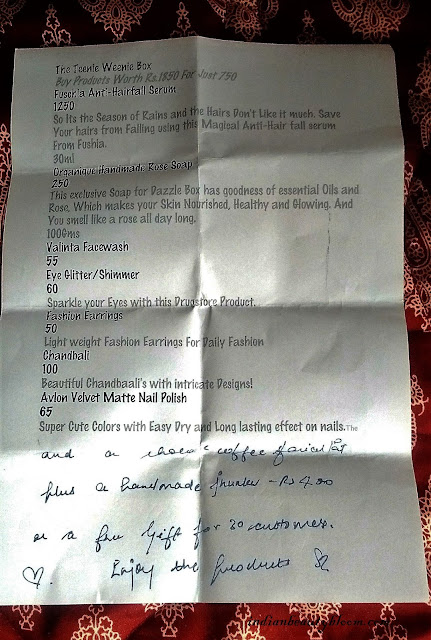 The Teenie Weenie Box
Buy Products Worth Rs.1850 For Just 750
Fuschia Anti-Hairfall Serum
1250
So Its the Season of Rains and the Hairs Don't Like it much. Save
Your hairs from Falling using this Magical Anti-Hair fall serum
From Fushia.
30ml
Organique Handmade Rose Soap
250
This exclusive Soap for Dazzle Box has goodness of essential Oils and
Rose, Which makes your Skin Nourished, Healthy and Glowing. And
You smell like a rose all day long.
100Gms
Valinta Facewash
55
Eye Glitter/Shimmer
60
Sparkle your Eyes with this Drugstore Product.
Fashion Earrings
50
Light weight Fashion Earrings For Daily Fashion
Chandbali
100
Beautiful Chandbaali's with intricate Designs!
Avlon Velvet Matte Nail Polish
65
Super Cute Colors with Easy Dry and Long lasting effect on nails.The
and a coffee facial kit
plus a handmade - Rs 400
as a free Gift for 20 customers.
♡. Enjoy the Products
indianbeautybloom.com